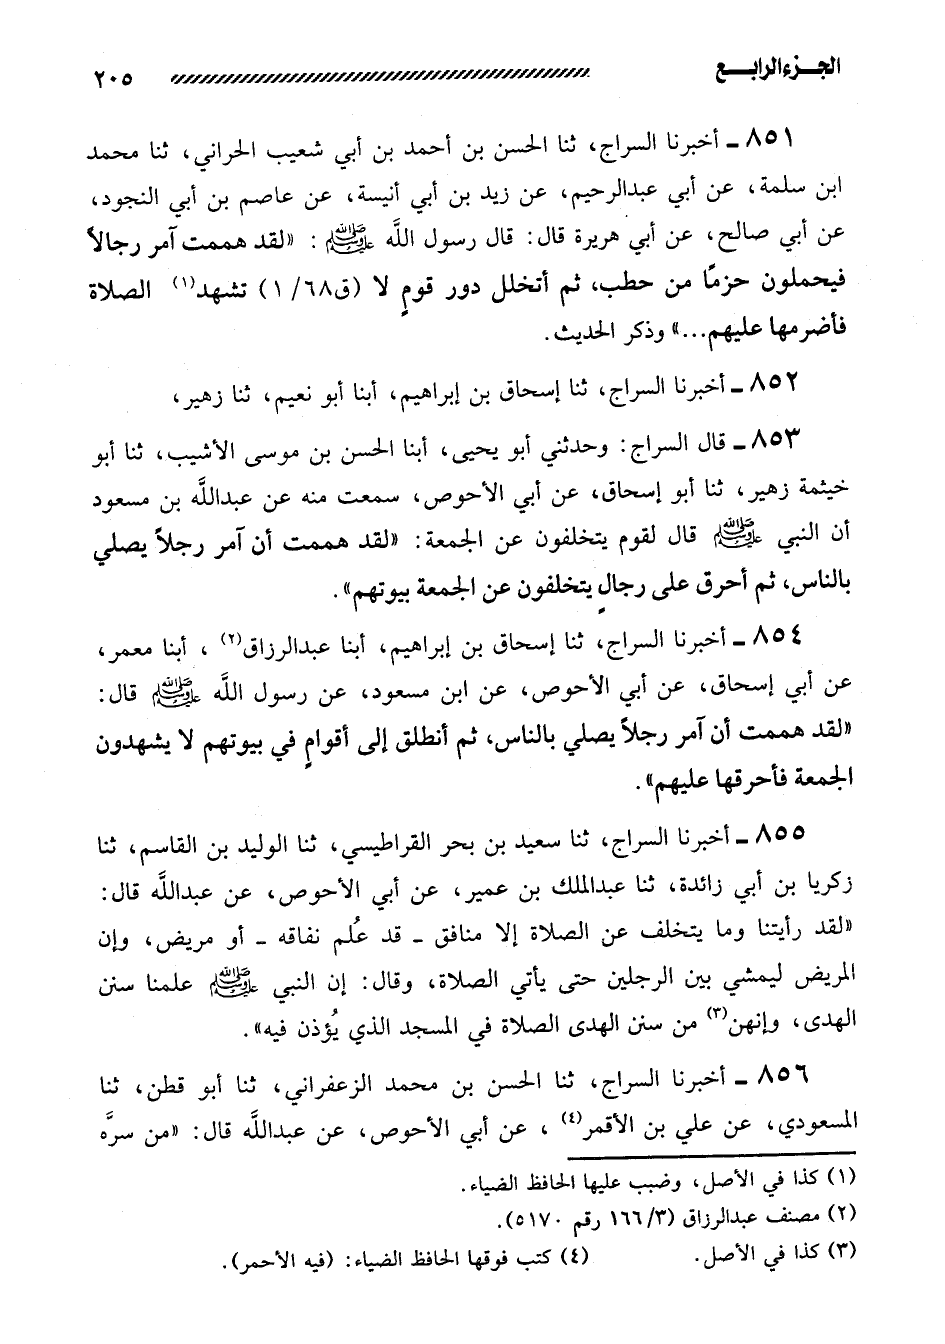 الجزء الرابع ٢٠٥
٨٥١ ـ أخبرنا السراج، ثنا الحسن بن أحمد بن أبي شعيب الحراني، ثنا محمد
ابن سلمة، عن أبي عبدالرحيم، عن زيد بن أبي أنيسة، عن عاصم بن أبي النجود،
عن أبي صالح، عن أبي هريرة قال: قال رسول اللَّه ﷺ: «لقد هممت آمر رجالاً
فيحملون حزمًا من حطب، ثم أتخلل دور قومٍ لا (ق٦٨/ ١) تشهد(١) الصلاة
فأضرمها عليهم...» وذكر الحديث.
٨٥٢ ـ أخبرنا السراج، ثنا إسحاق بن إبراهيم، أبنا أبو نعيم، ثنا زهير،
٨٥٣ ـ قال السراج: وحدثني أبو يحيى، أبنا الحسن بن موسى الأشيب، ثنا أبو
خيثمة زهير، ثنا أبو إسحاق، عن أبي الأحوص، سمعت منه عن عبداللَّه بن مسعود
أن النبي ﷺ قال لقوم يتخلفون عن الجمعة: «لقد هممت أن آمر رجلاً يصلي
بالناس، ثم أحرق على رجالٍ يتخلفون عن الجمعة بيوتهم».
٨٥٤ ـ أخبرنا السراج، ثنا إسحاق بن إبراهيم، أبنا عبدالرزاق(٢)، أبنا معمر،
عن أبي إسحاق، عن أبي الأحوص، عن ابن مسعود، عن رسول اللَّه ﷺ قال:
«لقد هممت أن آمر رجلاً يصلي بالناس، ثم أنطلق إلى أقوامٍ في بيوتهم لا يشهدون
الجمعة فأحرقها عليهم».
٨٥٥ ـ أخبرنا السراج، ثنا سعيد بن بحر القراطيسي، ثنا الوليد بن القاسم، ثنا
زكريا بن أبي زائدة، ثنا عبدالملك بن عمير، عن أبي الأحوص، عن عبداللَّه قال:
«لقد رأيتنا وما يتخلف عن الصلاة إلا منافق ـ قد عُلم نفاقه ـ أو مريض، وإن
المريض ليمشي بين الرجلين حتى يأتي الصلاة، وقال: إن النبي ﷺ علمنا سنن
الهدى، وإنهن(٣) من سنن الهدى الصلاة في المسجد الذي يُؤذن فيه».
٨٥٦ ـ أخبرنا السراج، ثنا الحسن بن محمد الزعفراني، ثنا أبو قطن، ثنا
المسعودي، عن علي بن الأقمر(٤)، عن أبي الأحوص، عن عبداللَّه قال: «من سرَّه
(١) كذا في الأصل، وضبب عليها الحافظ الضياء.
(٢) مصنف عبدالرزاق (٣/ ١٦٦ رقم ٥١٧٠).
(٣) كذا في الأصل. (٤) كتب فوقها الحافظ الضياء: (فيه الأحمر).